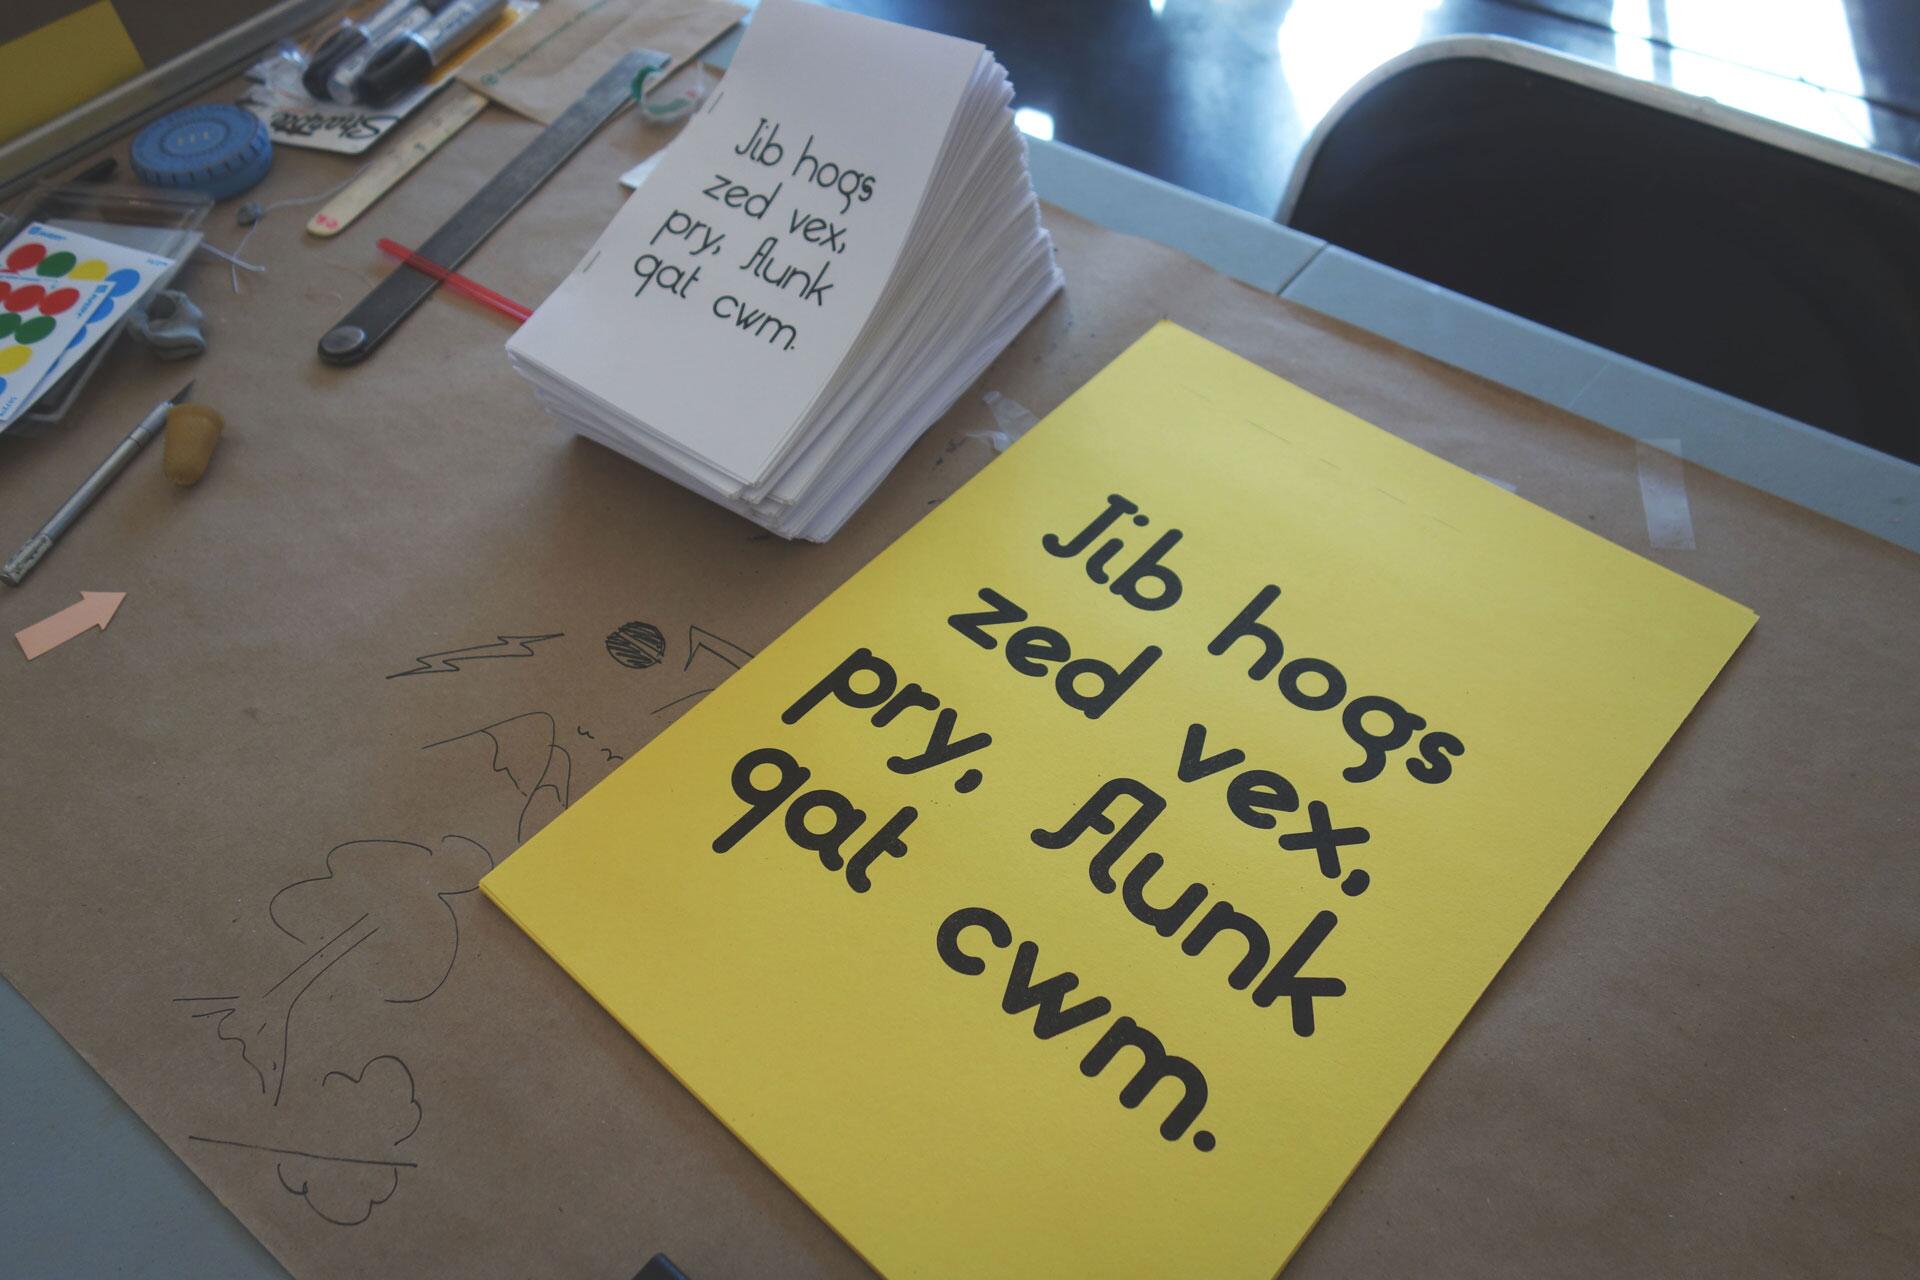 Sharpie
Jib hogs
zed vex,
pry, flunk
qat cwm.
Jib hogs
zed vex,
pry, flunk
qat cwm.